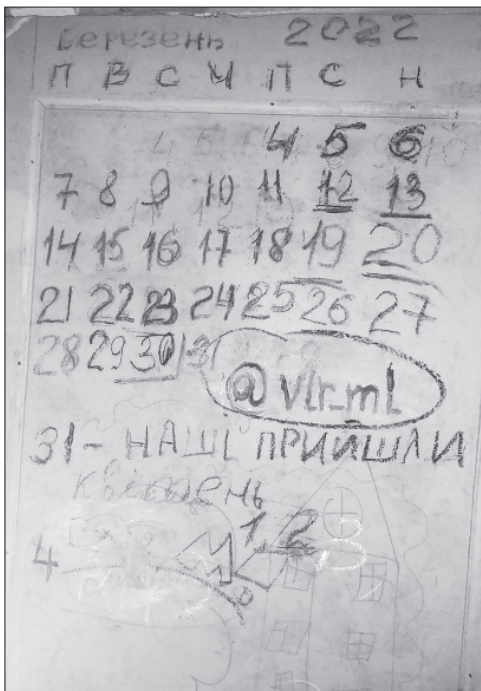 Березень 2022
П В С Ч П С Н
4 5 6
7 8 9 10 11 12 13
14 15 16 17 18 19 20
21 22 23 24 25 26 27
28 29 30 31
@vlr_ml
31 - НАШІ ПРИИШЛИ
квітень
1 2 3
4